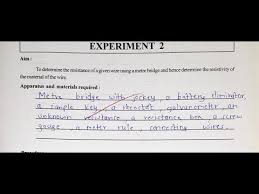 EXPERIMENT 2
Aim :
To determine the resistance of a given wire using a metre bridge and hence determine the resistivity of
the material of the wire.
Apparatus and materials required :
Metre bridge with jockey, a battery eliminator,
a simple key, a rheostat, galvanometer, an
unknown resistance, a resistance box, a screw
gauge, a meter rule, connecting wires.